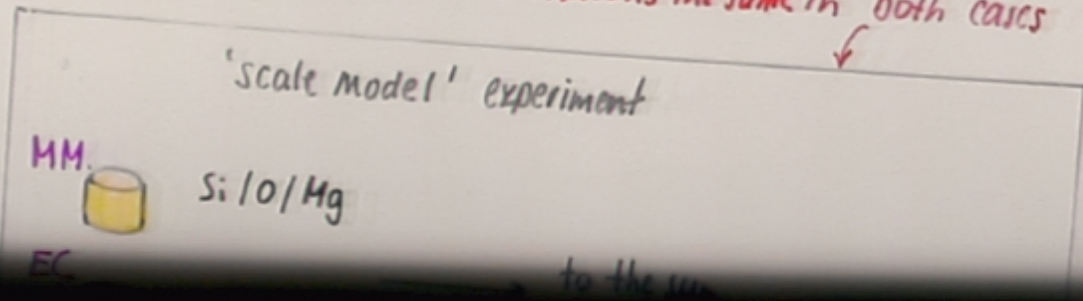 the same in both cases
'scale model' experiment
MM.
Si/O/Mg
EC
to the